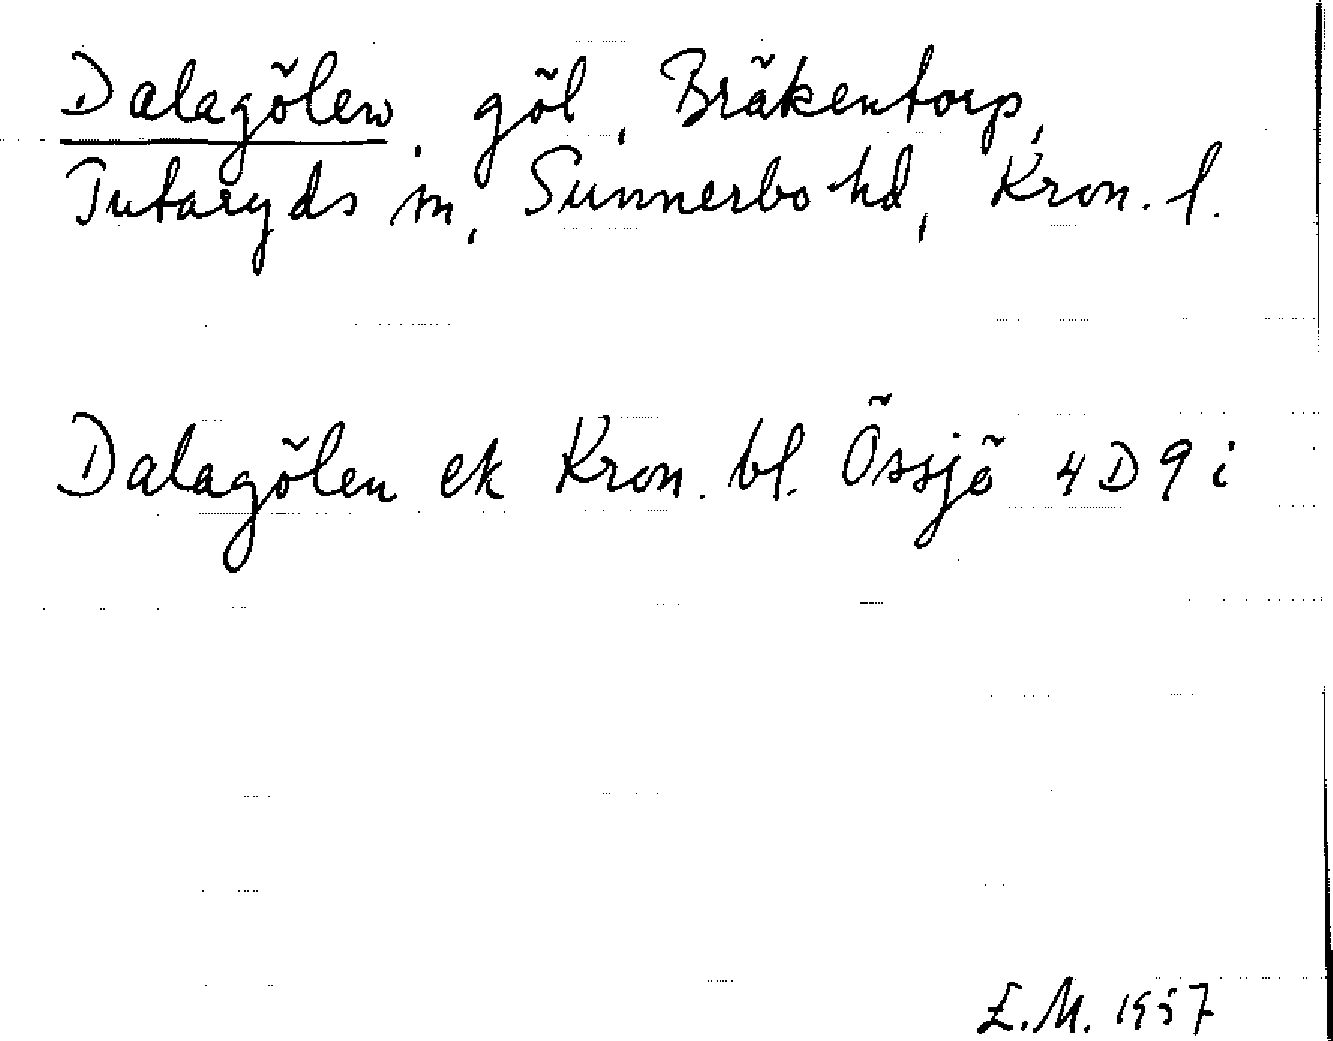 Dalagölen, göl, Bräkentorp,
Tutaryds sn, Sunnerbo hd, Kron. l.
Dalagölen ek Kron. bl. Össjö 4D9i
E.M. 1957